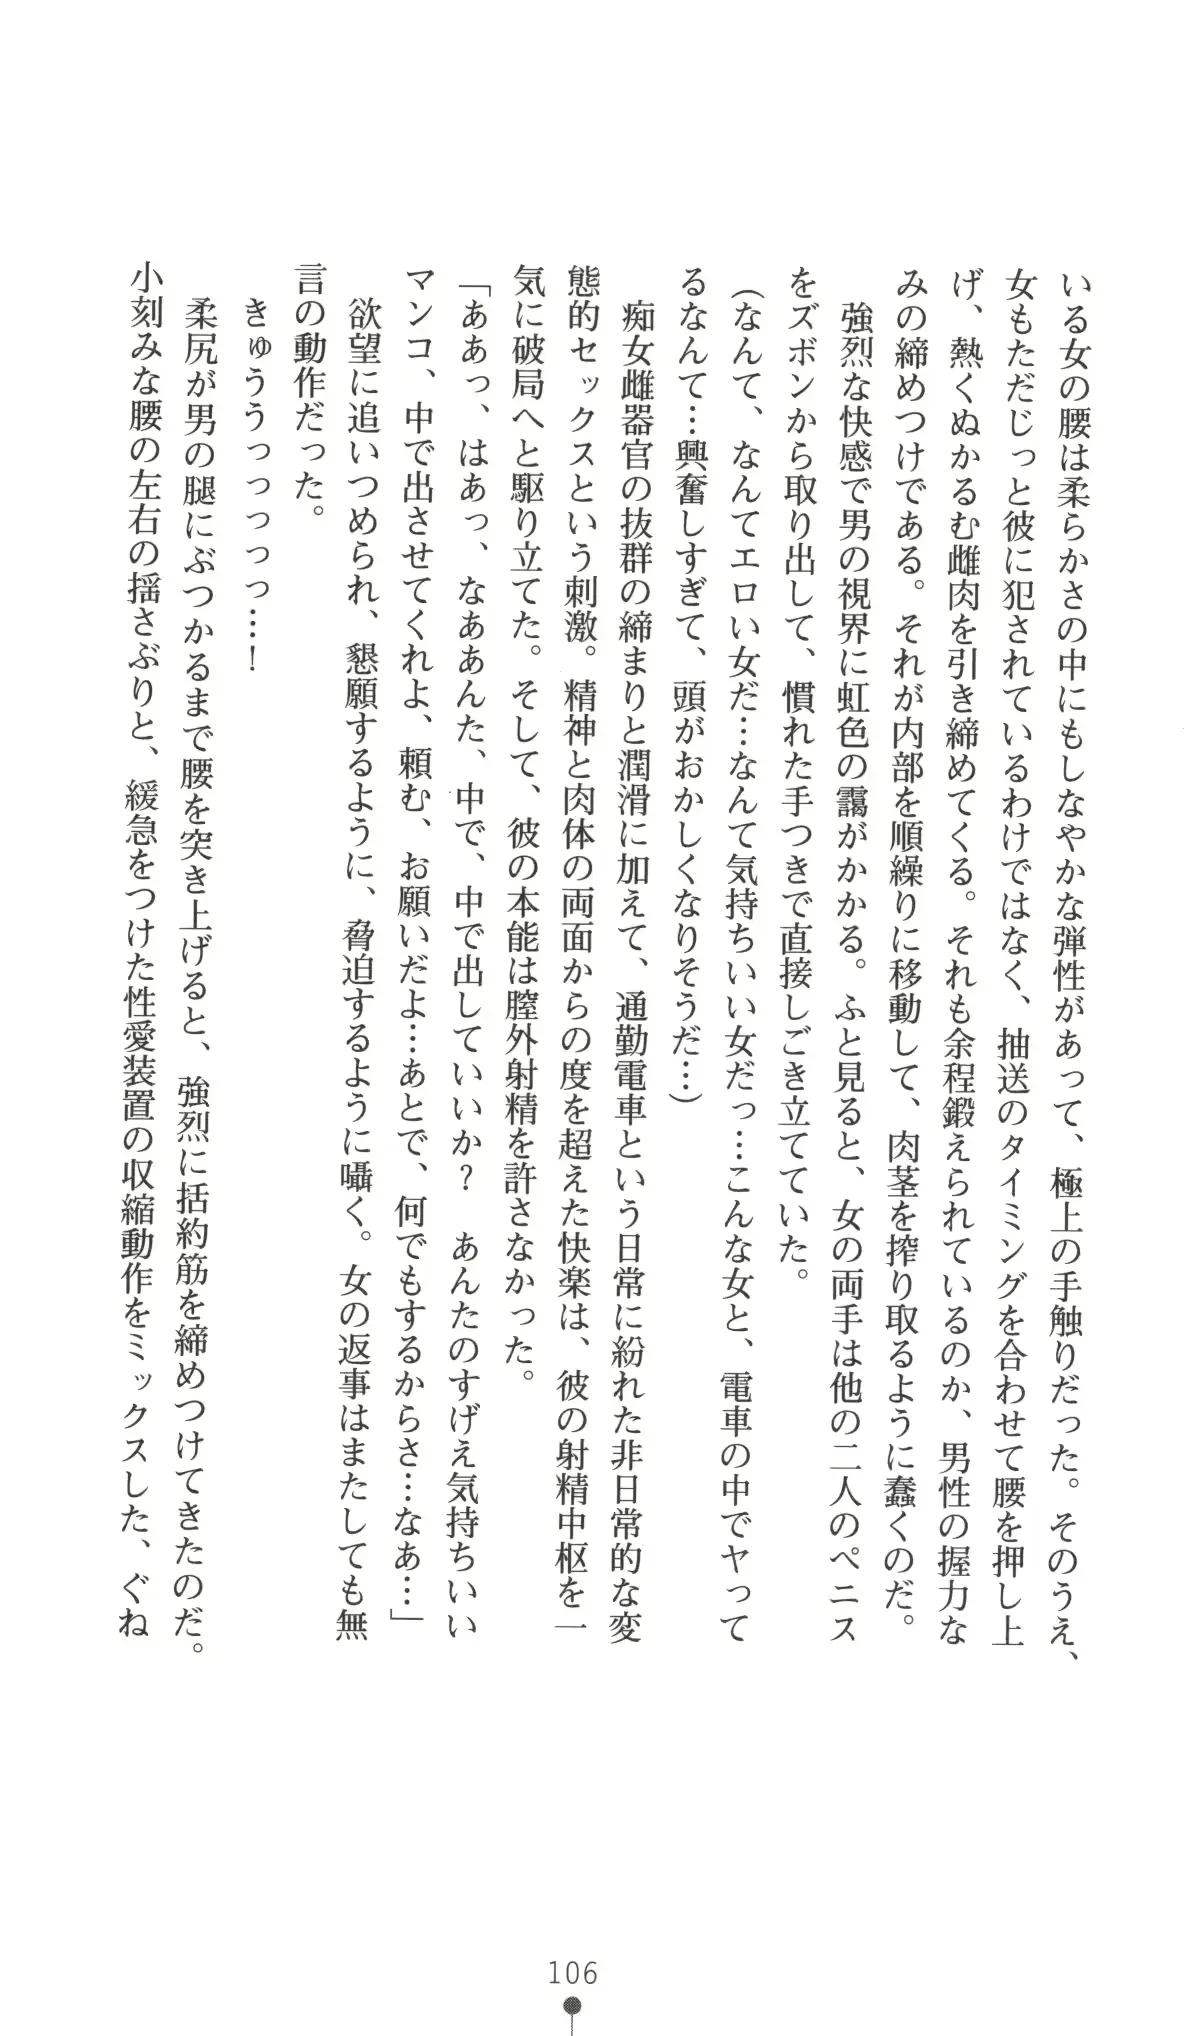 いる女の腰は柔らかさの中にもしなやかな弾性があって、極上の手触りだった。そのうえ、
女もただじっと彼に犯されているわけではなく、抽送のタイミングを合わせて腰を押し上
げ、熱くぬかるむ雌肉を引き締めてくる。それも余程鍛えられているのか、男性の握力な
みの締めつけである。それが内部を順繰りに移動して、肉茎を搾り取るように蠢くのだ。
強烈な快感で男の視界に虹色の靄がかかる。ふと見ると、女の両手は他の二人のペニス
をズボンから取り出して、慣れた手つきで直接しごき立てていた。
(なんて、なんてエロい女だ…なんて気持ちいい女だっ…こんな女と、電車の中でヤって
るなんて…興奮しすぎて、頭がおかしくなりそうだ…)
痴女雌器官の抜群の締まりと潤滑に加えて、通勤電車という日常に紛れた非日常的な変
態的セックスという刺激。精神と肉体の両面からの度を超えた快楽は、彼の射精中枢を一
気に破局へと駆り立てた。そして、彼の本能は膣外射精を許さなかった。
「ああっ、はあっ、なああんた、中で、中で出していいか? あんたのすげえ気持ちいい
マンコ、中で出させてくれよ、頼む、お願いだよ…あとで、何でもするからさ…なあ…」
欲望に追いつめられ、懇願するように、脅迫するように囁く。女の返事はまたしても無
言の動作だった。
きゅううっっっっっ…!
柔尻が男の腿にぶつかるまで腰を突き上げると、強烈に括約筋を締めつけてきたのだ。
小刻みな腰の左右の揺さぶりと、緩急をつけた性愛装置の収縮動作をミックスした、ぐね
106